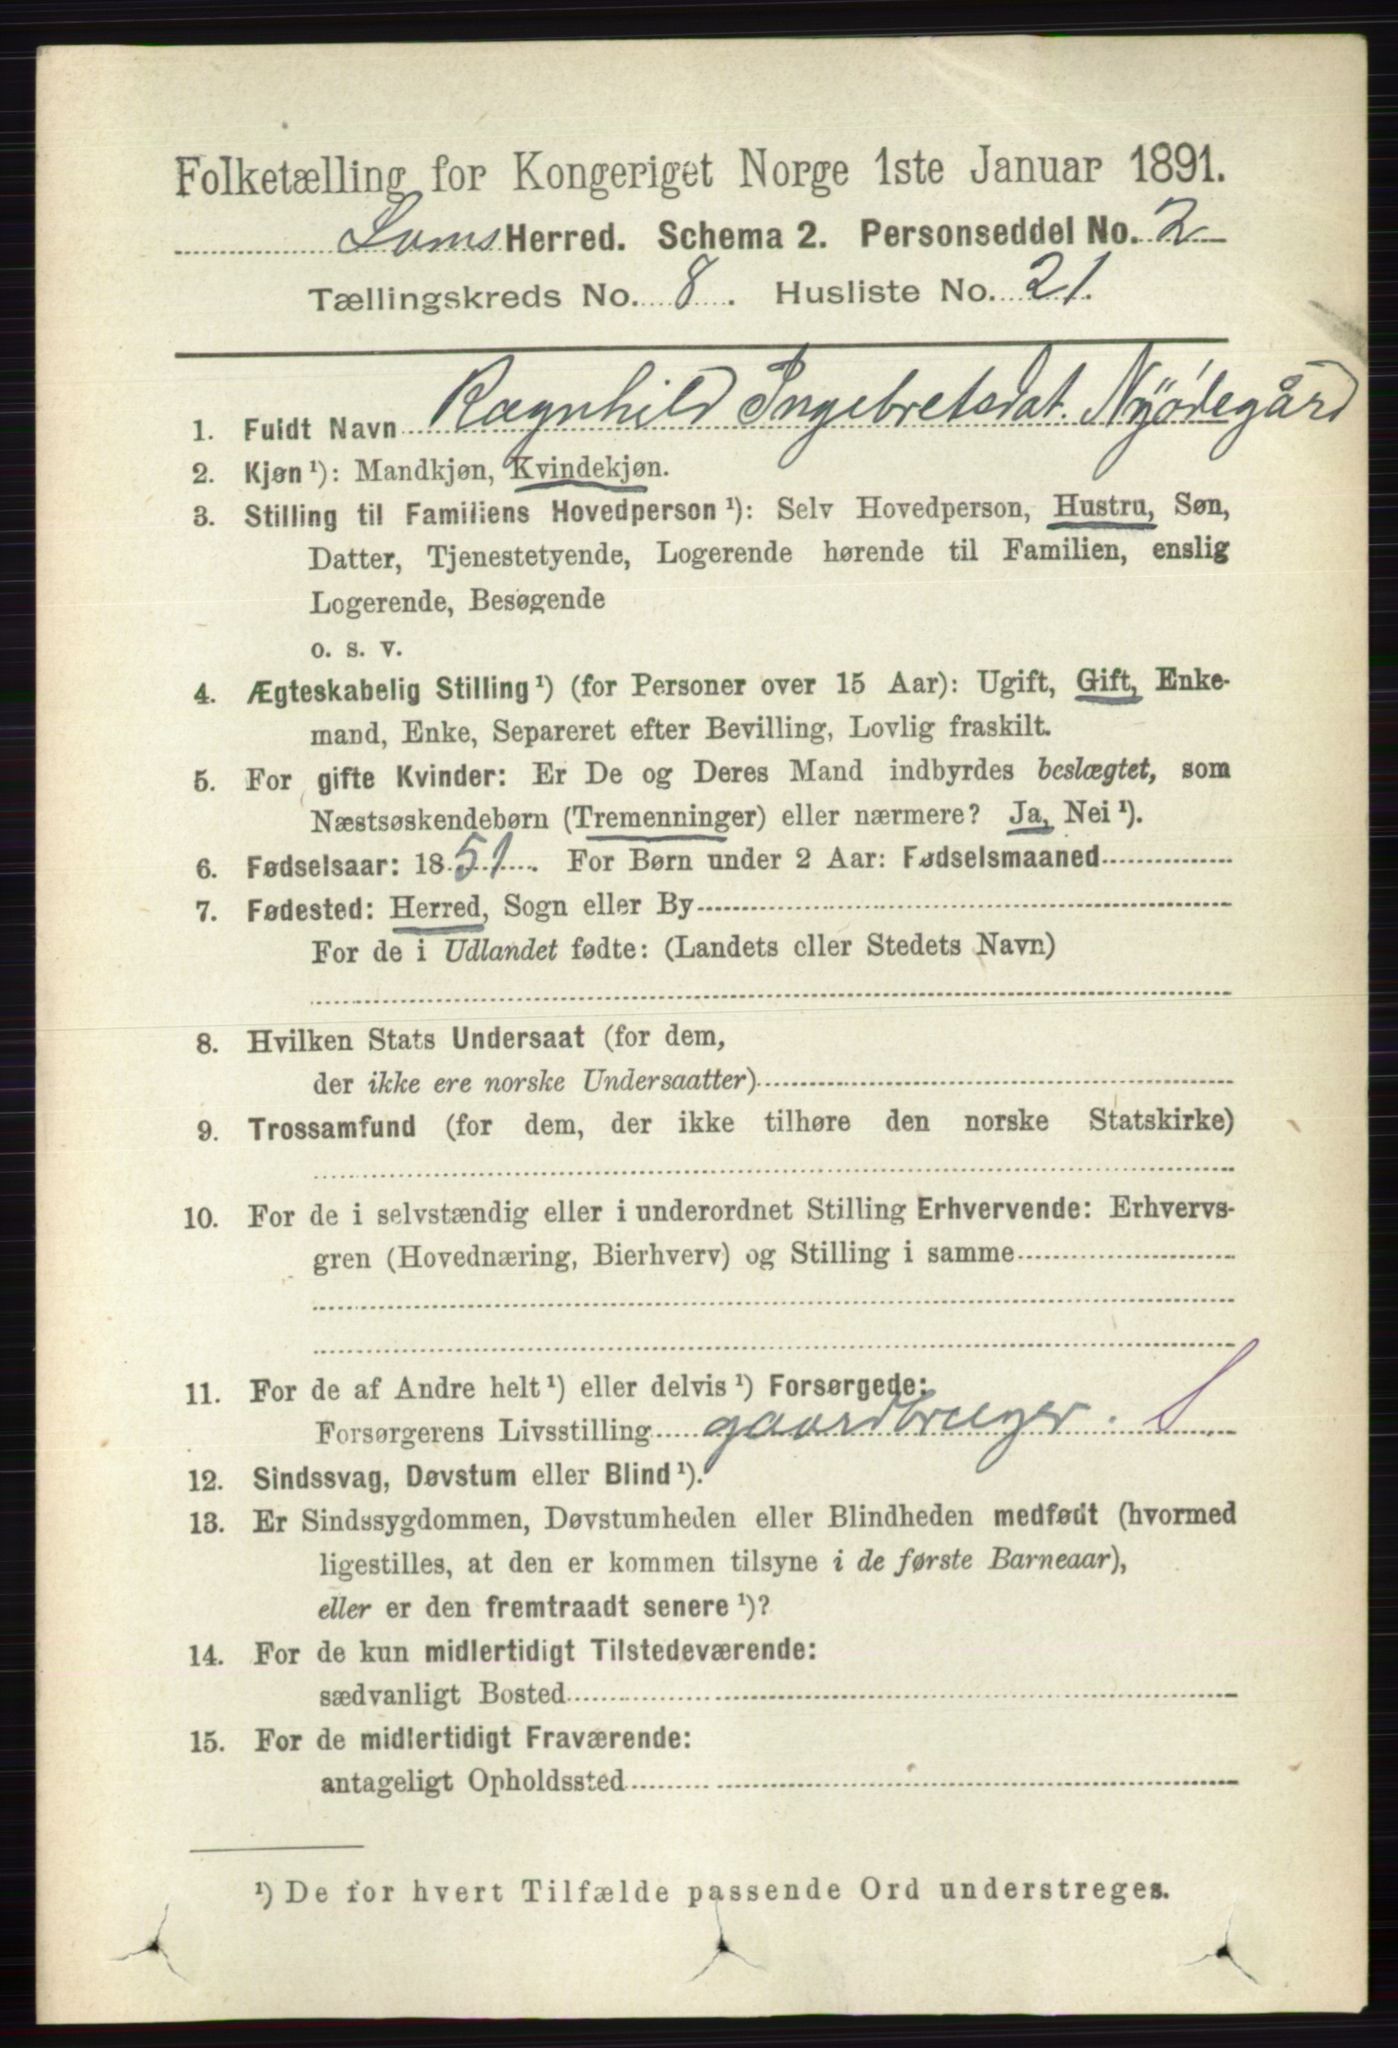 Folketælling for Kongeriget Norge 1ste Januar 1891.
Loms Herred. Schema 2. Personseddel No. 2
Tællingskreds No. 8. Husliste No. 21.
1. Fuldt Navn Ragnhild Ingebretsdat. Nyødegård
2. Kjøn ¹): Mandkjøn, Kvindekjøn.
3. Stilling til Familiens Hovedperson ¹): Selv Hovedperson, Hustru, Søn,
Datter, Tjenestetyende, Logerende hørende til Familien, enslig
Logerende, Besøgende
o. s. v.
4. Ægteskabelig Stilling ¹) (for Personer over 15 Aar): Ugift, Gift, Enke-
mand, Enke, Separeret efter Bevilling, Lovlig fraskilt.
5. For gifte Kvinder: Er De og Deres Mand indbyrdes beslægtet, som
Næstsøskendebørn (Tremenninger) eller nærmere? Ja, Nei ¹).
6. Fødselsaar: 1851. For Børn under 2 Aar: Fødselsmaaned
7. Fødested: Herred, Sogn eller By
For de i Udlandet fødte: (Landets eller Stedets Navn)
8. Hvilken Stats Undersaat (for dem,
der ikke ere norske Undersaatter)
9. Trossamfund (for dem, der ikke tilhøre den norske Statskirke)
10. For de i selvstændig eller i underordnet Stilling Erhvervende: Erhvervs-
gren (Hovednæring, Bierhverv) og Stilling i samme
11. For de af Andre helt ¹) eller delvis ¹) Forsørgede:
Forsørgerens Livsstilling gaardbruger. S
12. Sindssvag, Døvstum eller Blind ¹).
13. Er Sindssygdommen, Døvstumheden eller Blindheden medfødt (hvormed
ligestilles, at den er kommen tilsyne i de første Barneaar),
eller er den fremtraadt senere ¹)?
14. For de kun midlertidigt Tilstedeværende:
sædvanligt Bosted
15. For de midlertidigt Fraværende:
antageligt Opholdssted
¹) De for hvert Tilfælde passende Ord understreges.